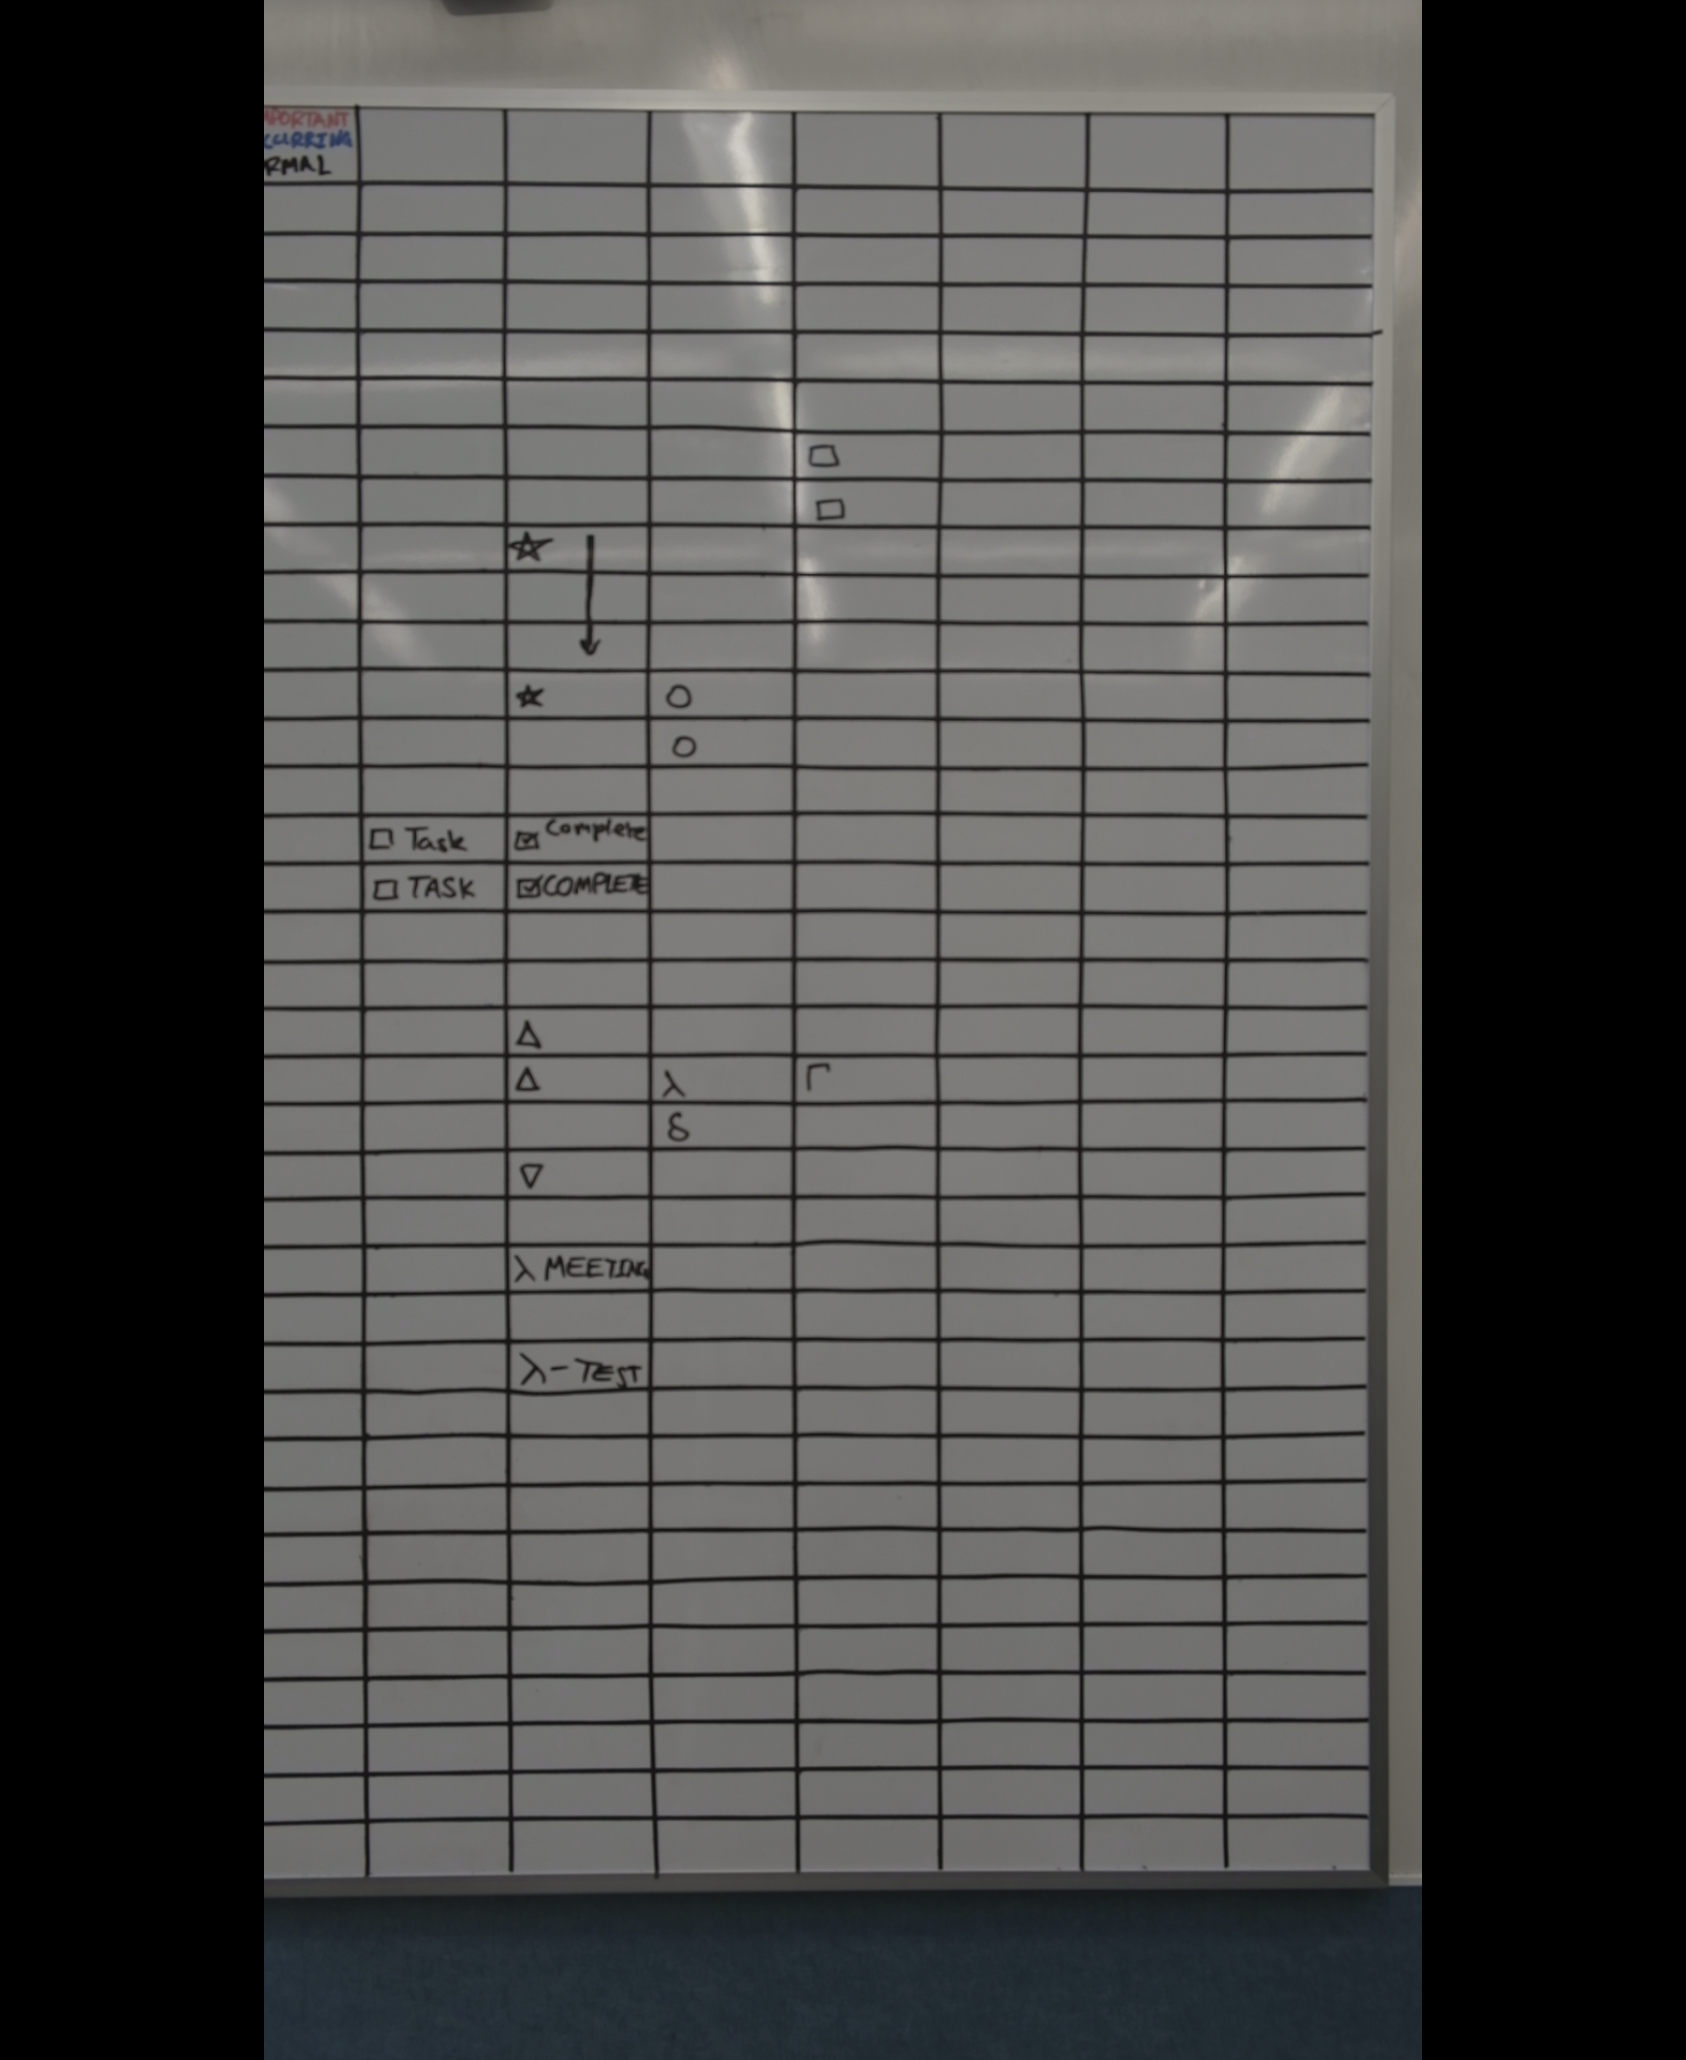 MPORTANT
CURRING
RMAL
□
□
☆
↓
☆ ○
○
□ Task ☑ Complete
□ TASK ☑ COMPLETE
△
△ λ Γ
δ
▽
λ MEETING
λ - TEST